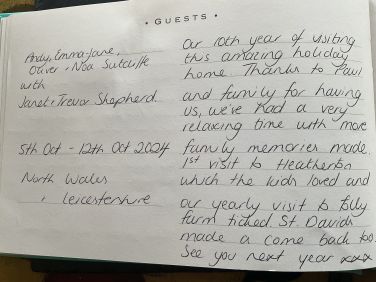 • GUESTS •
Andy, Emma-Jane,
Oliver + Noa Sutcliffe
with
Janet + Trevor Shepherd.
5th Oct - 12th Oct 2024
North Wales
+ Leicestershire
Our 10th year of visiting
this amazing holiday
home. Thanks to Paul
and family for having
us, we've had a very
relaxing time with more
family memories made.
1st visit to Heatherton
which the kids loved and
our yearly visit to folly
farm ticked. St. Davids
made a come back too.
See you next year xxx